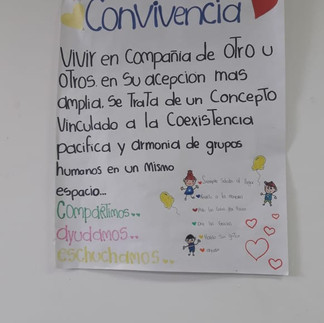 Convivencia
Vivir en Compañia de otro u
otros, en su acepcion mas
amplia, se Trata de un Concepto
Vinculado a la Coexistencia
pacifica y armonia de grupos
humanos en un mismo
espacio...
Compartimos..
ayudamos..
eschuchamos..